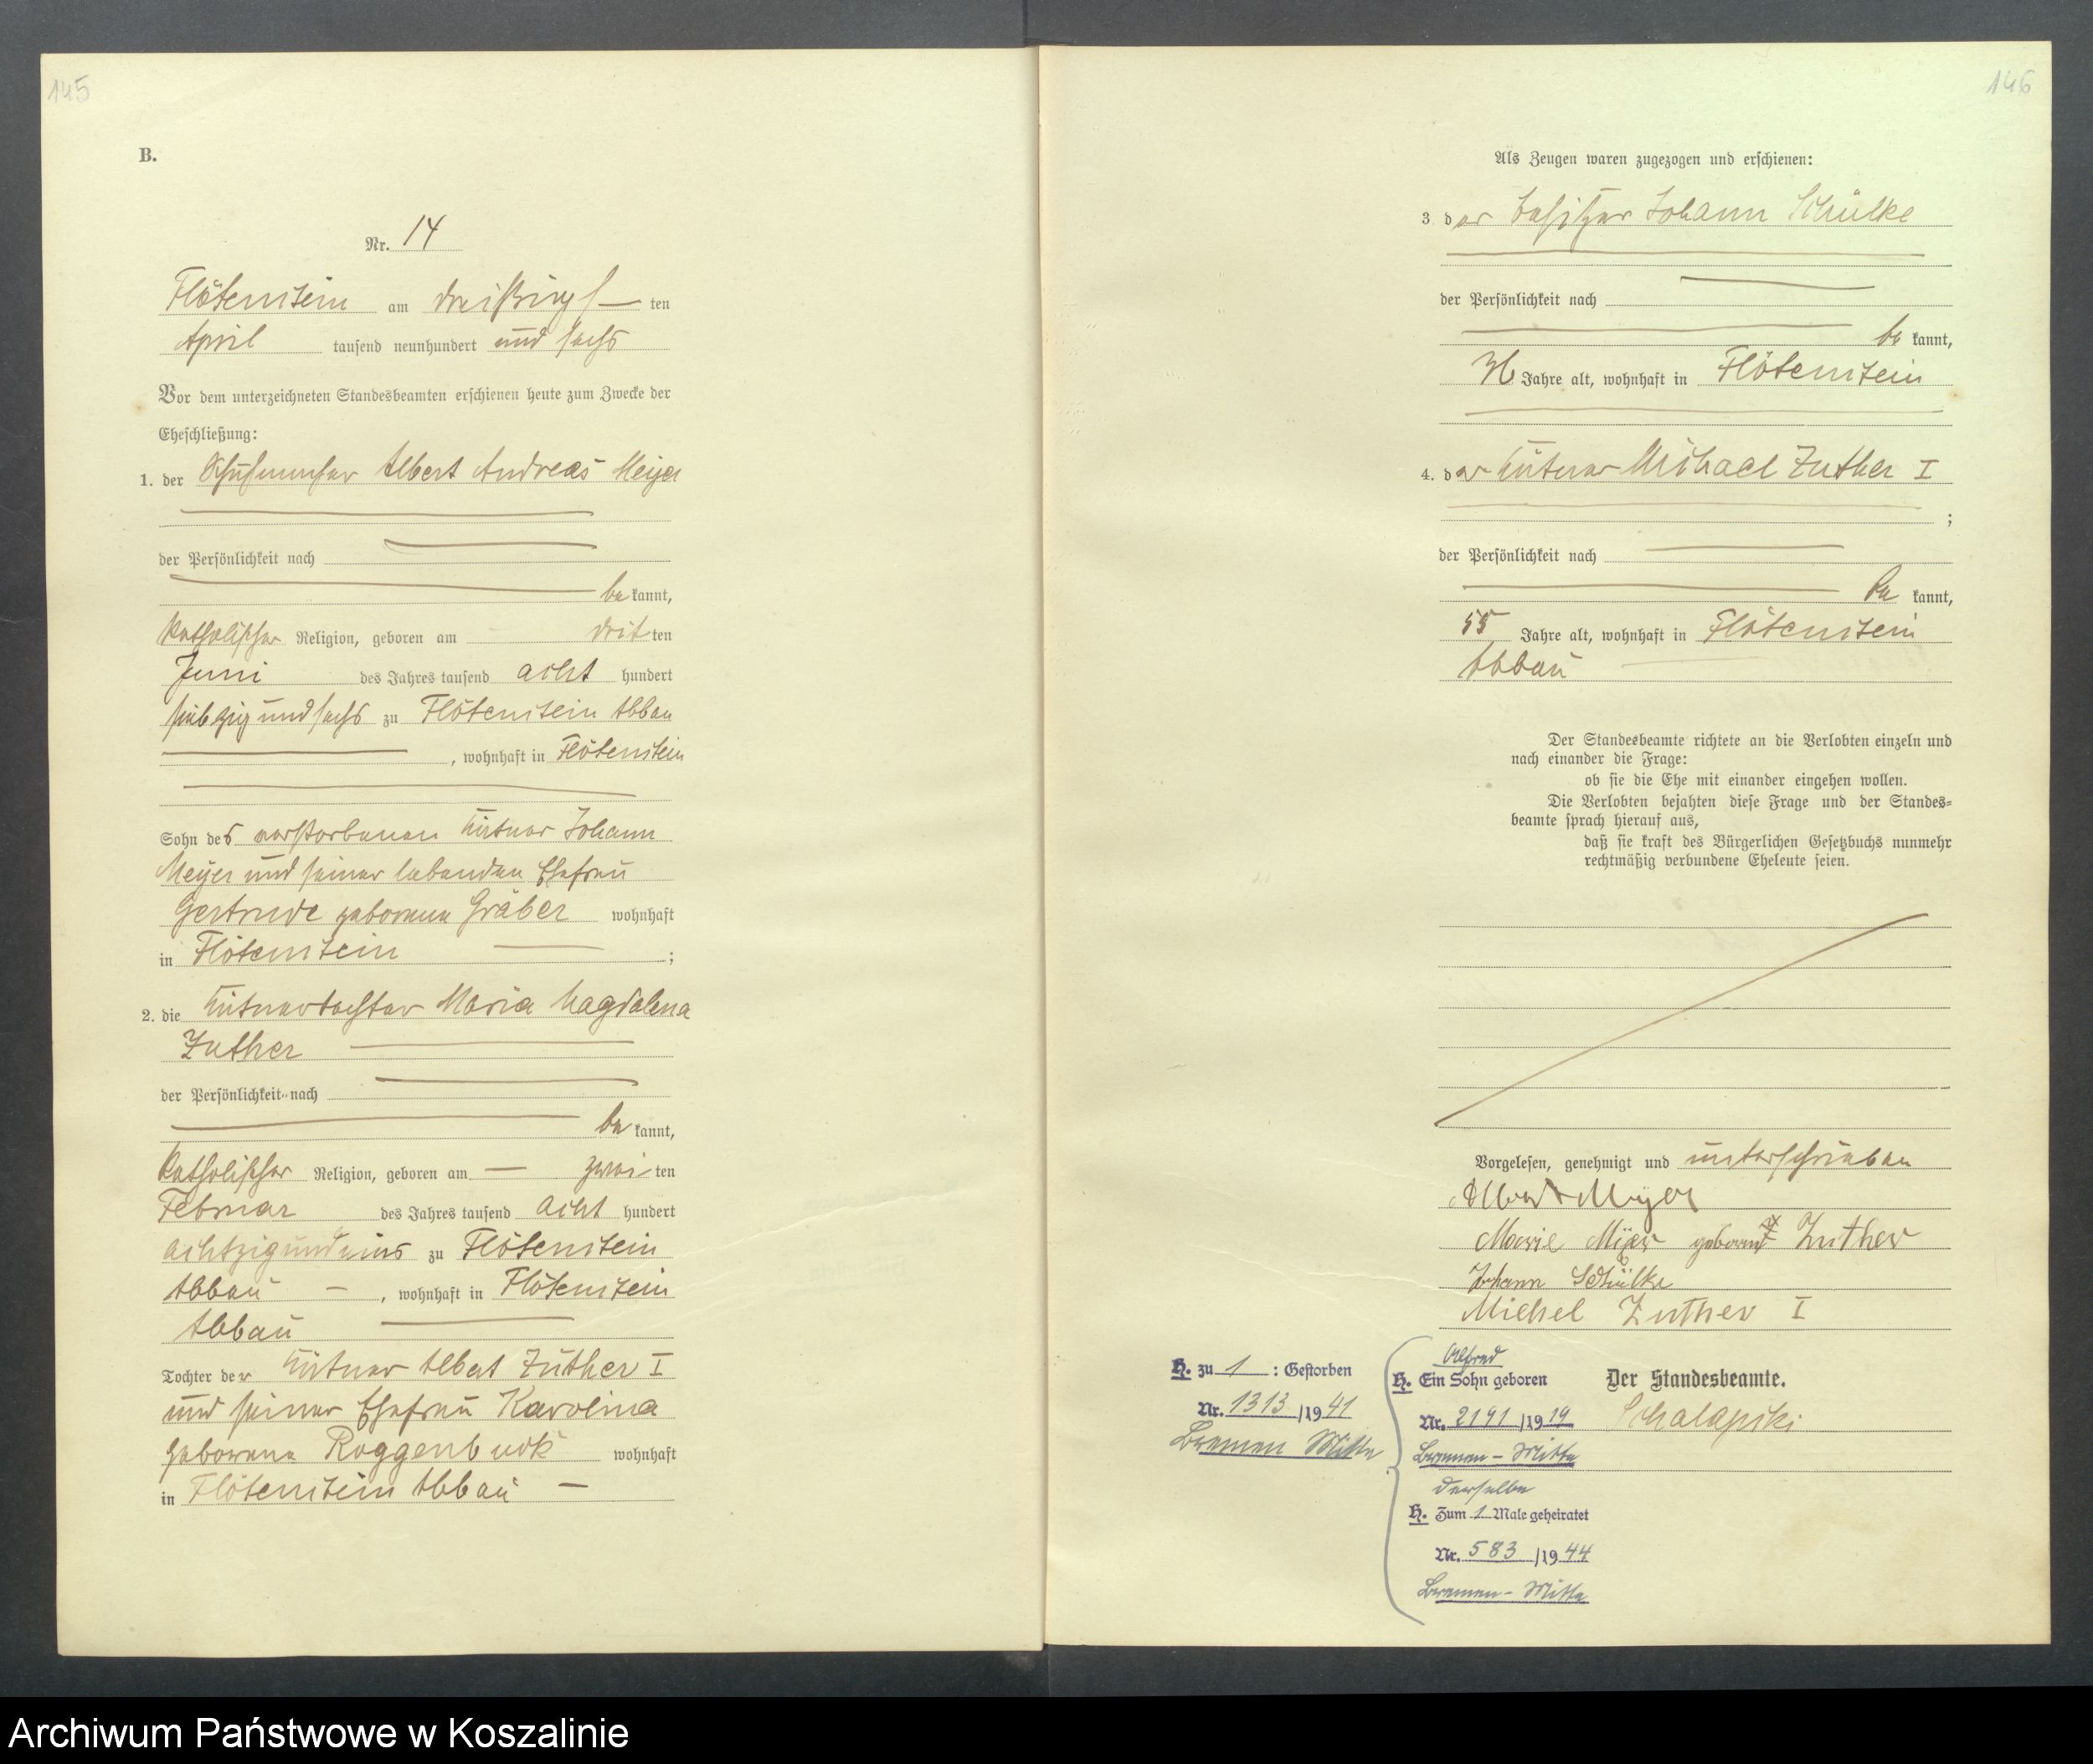 145
B.
Nr. 14
Flötenstein am dreißigsten
April tausend neunhundert und sechs
Vor dem unterzeichneten Standesbeamten erschienen heute zum Zwecke der
Eheschließung:
1. der Albert Andreas Meyer
der Persönlichkeit nach
bekannt,
katholischer Religion, geboren am dritten
Juni des Jahres tausend acht hundert
siebzig und sechs zu Flötenstein Abbau
, wohnhaft in Flötenstein
Sohn des verstorbenen Kätner Johann
Meyer und seiner lebenden Ehefrau
Gertrude geborene Gräber wohnhaft
in Flötenstein ;
2. die Kätnertochter Maria Magdalena
Zuther
der Persönlichkeit nach
bekannt,
katholischer Religion, geboren am zweiten
Februar des Jahres tausend acht hundert
achtzig und eins zu Flötenstein
Abbau , wohnhaft in Flötenstein
Abbau
Tochter der Kätner Albert Zuther I
und seiner Ehefrau Karolina
geborene Roggenbuck wohnhaft
in Flötenstein Abbau
146
Als Zeugen waren zugezogen und erschienen:
3 der Besitzer Johann Schülke
der Persönlichkeit nach
bekannt,
36 Jahre alt, wohnhaft in Flötenstein
4. der Kätner Michael Zuther I
;
der Persönlichkeit nach
bekannt,
55 Jahre alt, wohnhaft in Flötenstein
Abbau
Der Standesbeamte richtete an die Verlobten einzeln und
nach einander die Frage:
ob sie die Ehe mit einander eingehen wollen.
Die Verlobten bejahten diese Frage und der Standes=
beamte sprach hierauf aus,
daß sie kraft des Bürgerlichen Gesetzbuchs nunmehr
rechtmäßig verbundene Eheleute seien.
Vorgelesen, genehmigt und unterschrieben
Albert Meyer
Marie Mijer geborene Zuther
Johann Schülke
Michel Zuther I
H. zu 1 : Gestorben
Nr. 1313 /1941
Bremen Mitte
Alfred
H. Ein Sohn geboren
Nr. 2191 /1919
Bremen-Mitte
derselbe
H. Zum 1 Male geheiratet
Nr. 583 /1944
Bremen-Mitte
Der Standesbeamte.
Schalapski
Archiwum Państwowe w Koszalinie